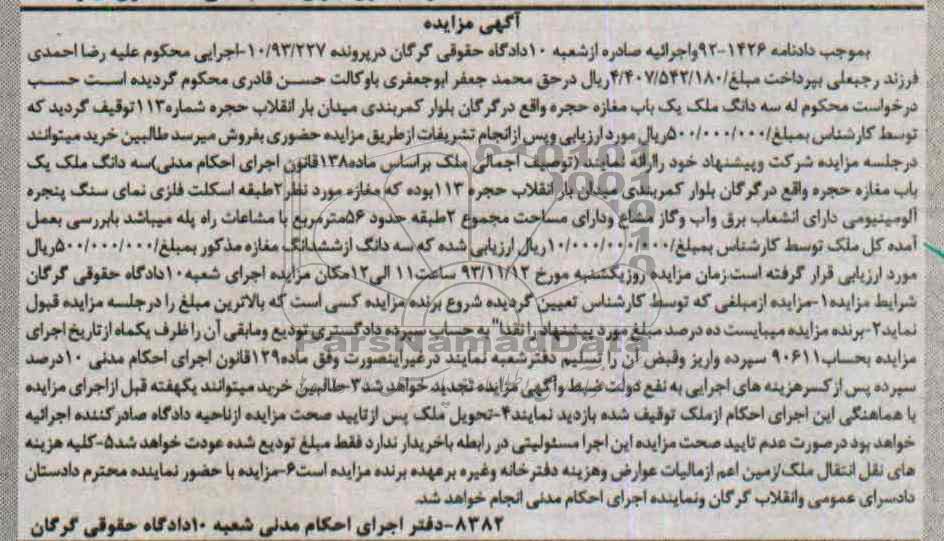 آگهی مزایده
بموجب دادنامه ۱۴۲۶-۹۲واجرائیه صادره ازشعبه ۱۰دادگاه حقوقی گرگان درپرونده ۱۰/۹۳/۲۲۷-اجرایی محکوم علیه رضا احمدی
فرزند رجبعلی بپرداخت مبلغ/۴/۴۰۷/۵۴۲/۱۸۰ریال درحق محمد جعفر ابوجعفری باوکالت حسن قادری محکوم گردیده است حسب
درخواست محکوم له سه دانگ ملک یک باب مغازه حجره واقع درگرگان بلوار کمربندی میدان بار انقلاب حجره شماره۱۱۳توقیف گردید که
توسط کارشناس بمبلغ/۵۰۰/۰۰۰/۰۰۰ریال مورد ارزیابی وپس ازانجام تشریفات ازطریق مزایده حضوری بفروش میرسد طالبین خرید میتوانند
درجلسه مزایده شرکت وپیشنهاد خود راارائه نمایند(توصیف اجمالی ملک براساس ماده۱۳۸قانون اجرای احکام مدنی)سه دانگ ملک یک
باب مغازه حجره واقع درگرگان بلوار کمربندی میدان بار انقلاب حجره ۱۱۳بوده که مغازه مورد نظر۲طبقه اسکلت فلزی نمای سنگ پنجره
آلومینیومی دارای انشعاب برق وآب وگاز مشاع ودارای مساحت مجموع ۲طبقه حدود ۵۶مترمربع با مشاعات راه پله میباشد بابررسی بعمل
آمده کل ملک توسط کارشناس بمبلغ/۱۰/۰۰۰/۰۰۰/۰۰۰ریال ارزیابی شده که سه دانگ ازششدانگ مغازه مذکور بمبلغ/۵۰۰/۰۰۰/۰۰۰ریال
مورد ارزیابی قرار گرفته است.زمان مزایده روزیکشنبه مورخ ۹۳/۱۱/۱۲ ساعت۱۱ الی۱۲مکان مزایده اجرای شعبه۱۰دادگاه حقوقی گرگان
شرایط مزایده۱-مزایده ازمبلغی که توسط کارشناس تعیین گردیده شروع برنده مزایده کسی است که بالاترین مبلغ را درجلسه مزایده قبول
نماید۲-برنده مزایده میبایست ده درصد مبلغ مورد پیشنهاد را نقدا" به حساب سپرده دادگستری تودیع ومابقی آن را ظرف یکماه ازتاریخ اجرای
مزایده بحساب۹۰۶۱۱ سپرده واریز وقبض آن را تسلیم دفترشعبه نمایند درغیراینصورت وفق ماده۱۲۹قانون اجرای احکام مدنی ۱۰درصد
سپرده پس ازکسرهزینه های اجرایی به نفع دولت ضبط وآگهی مزایده تجدید خواهد شد۳-طالبین خرید میتوانند یکهفته قبل ازاجرای مزایده
با هماهنگی این اجرای احکام ازملک توقیف شده بازدید نمایند۴-تحویل ملک پس ازتایید صحت مزایده ازناحیه دادگاه صادرکننده اجرائیه
خواهد بود درصورت عدم تایید صحت مزایده این اجرا مسئولیتی در رابطه باخریدار ندارد فقط مبلغ تودیع شده عودت خواهد شد۵-کلیه هزینه
های نقل انتقال ملک/زمین اعم ازمالیات عوارض وهزینه دفترخانه وغیره برعهده برنده مزایده است۶-مزایده با حضور نماینده محترم دادستان
دادسرای عمومی وانقلاب گرگان ونماینده اجرای احکام مدنی انجام خواهد شد.
۸۳۸۲-دفتر اجرای احکام مدنی شعبه ۱۰دادگاه حقوقی گرگان
ParsNamadData